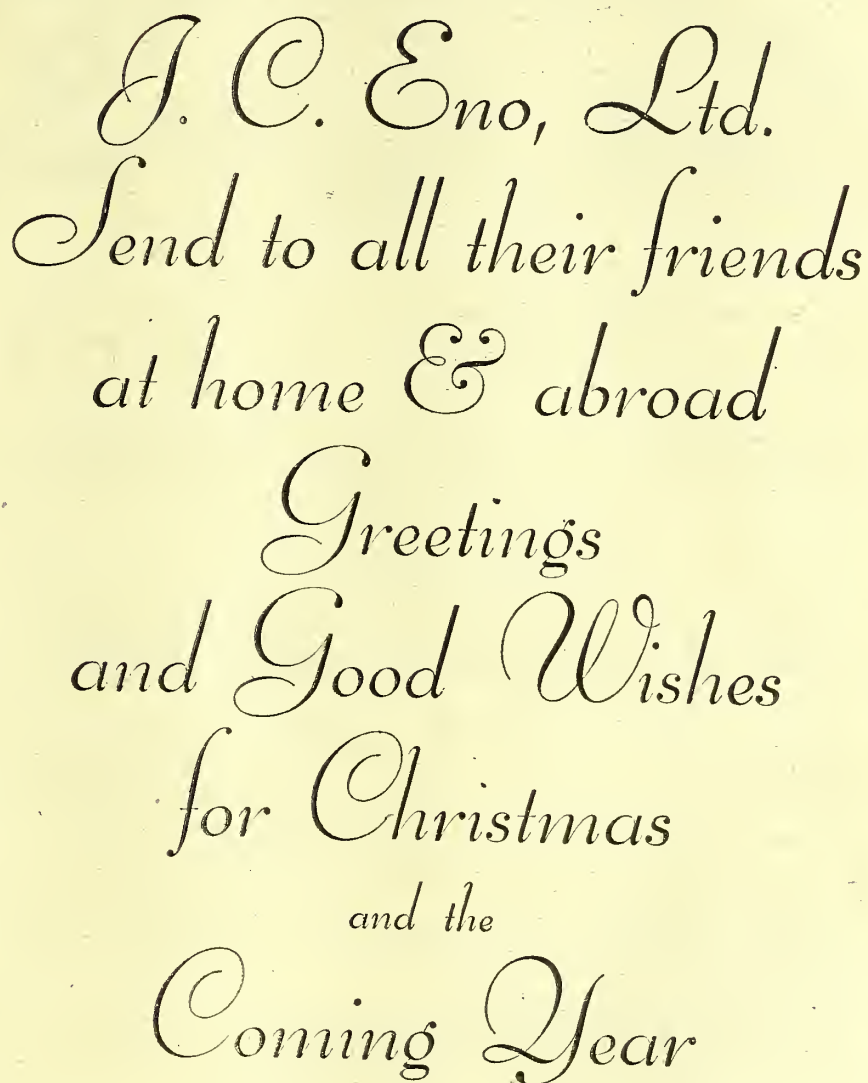 J. C. Eno, Ltd.
Send to all their friends
at home & abroad
Greetings
and Good Wishes
for Christmas
and the
Coming Year